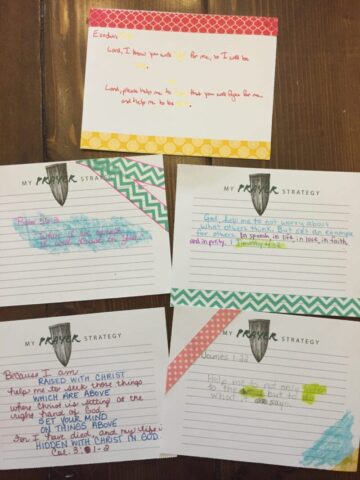 Exodus
Lord, I know you will fight for me, so I will be
Lord, please help me to that you will fight for me
and help me to be
MY PRAYER STRATEGY
Psalm 56:3
When I am afraid
I will trust in you.
MY PRAYER STRATEGY
God, help me to not worry about
what others think. But set an example
for others. In speech, in life, in love, in faith
and in purity. 1 Timothy 4:12
MY PRAYER STRATEGY
Because I am
RAISED WITH CHRIST
help me to seek those things
WHICH ARE ABOVE
where Christ is sitting at the
right hand of God.
SET YOUR MIND
ON THINGS ABOVE
For I have died, and my life is
HIDDEN WITH CHRIST IN GOD.
Col. 3:1-2
MY PRAYER STRATEGY
James 1:22
Help me to not only listen
to the but to do
what it says.